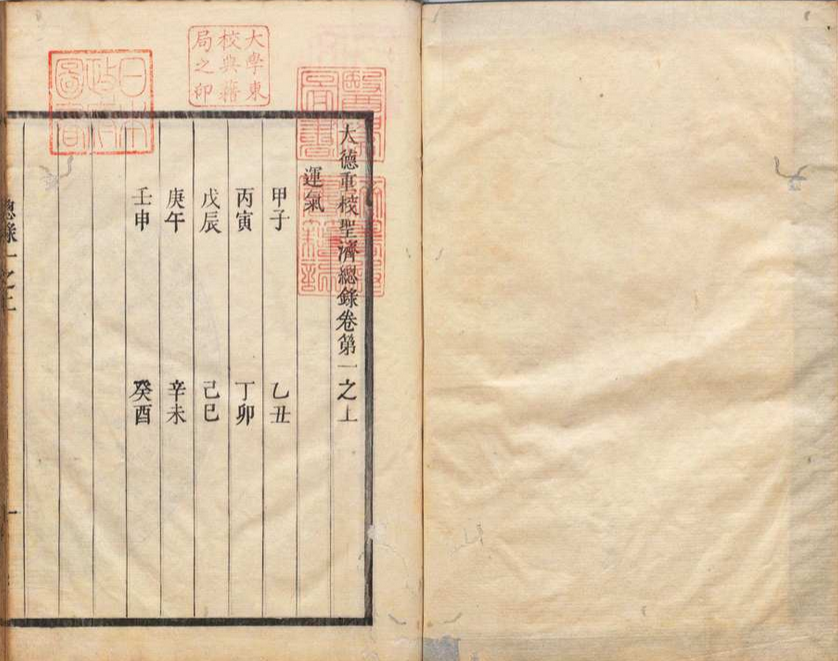 大學東
校典籍
局之印
日本
政府
圖書
大德重校聖濟總錄卷第一之上
運氣
甲子 乙丑
丙寅 丁卯
戊辰 己巳
庚午 辛未
壬申 癸酉
總錄一之上 一